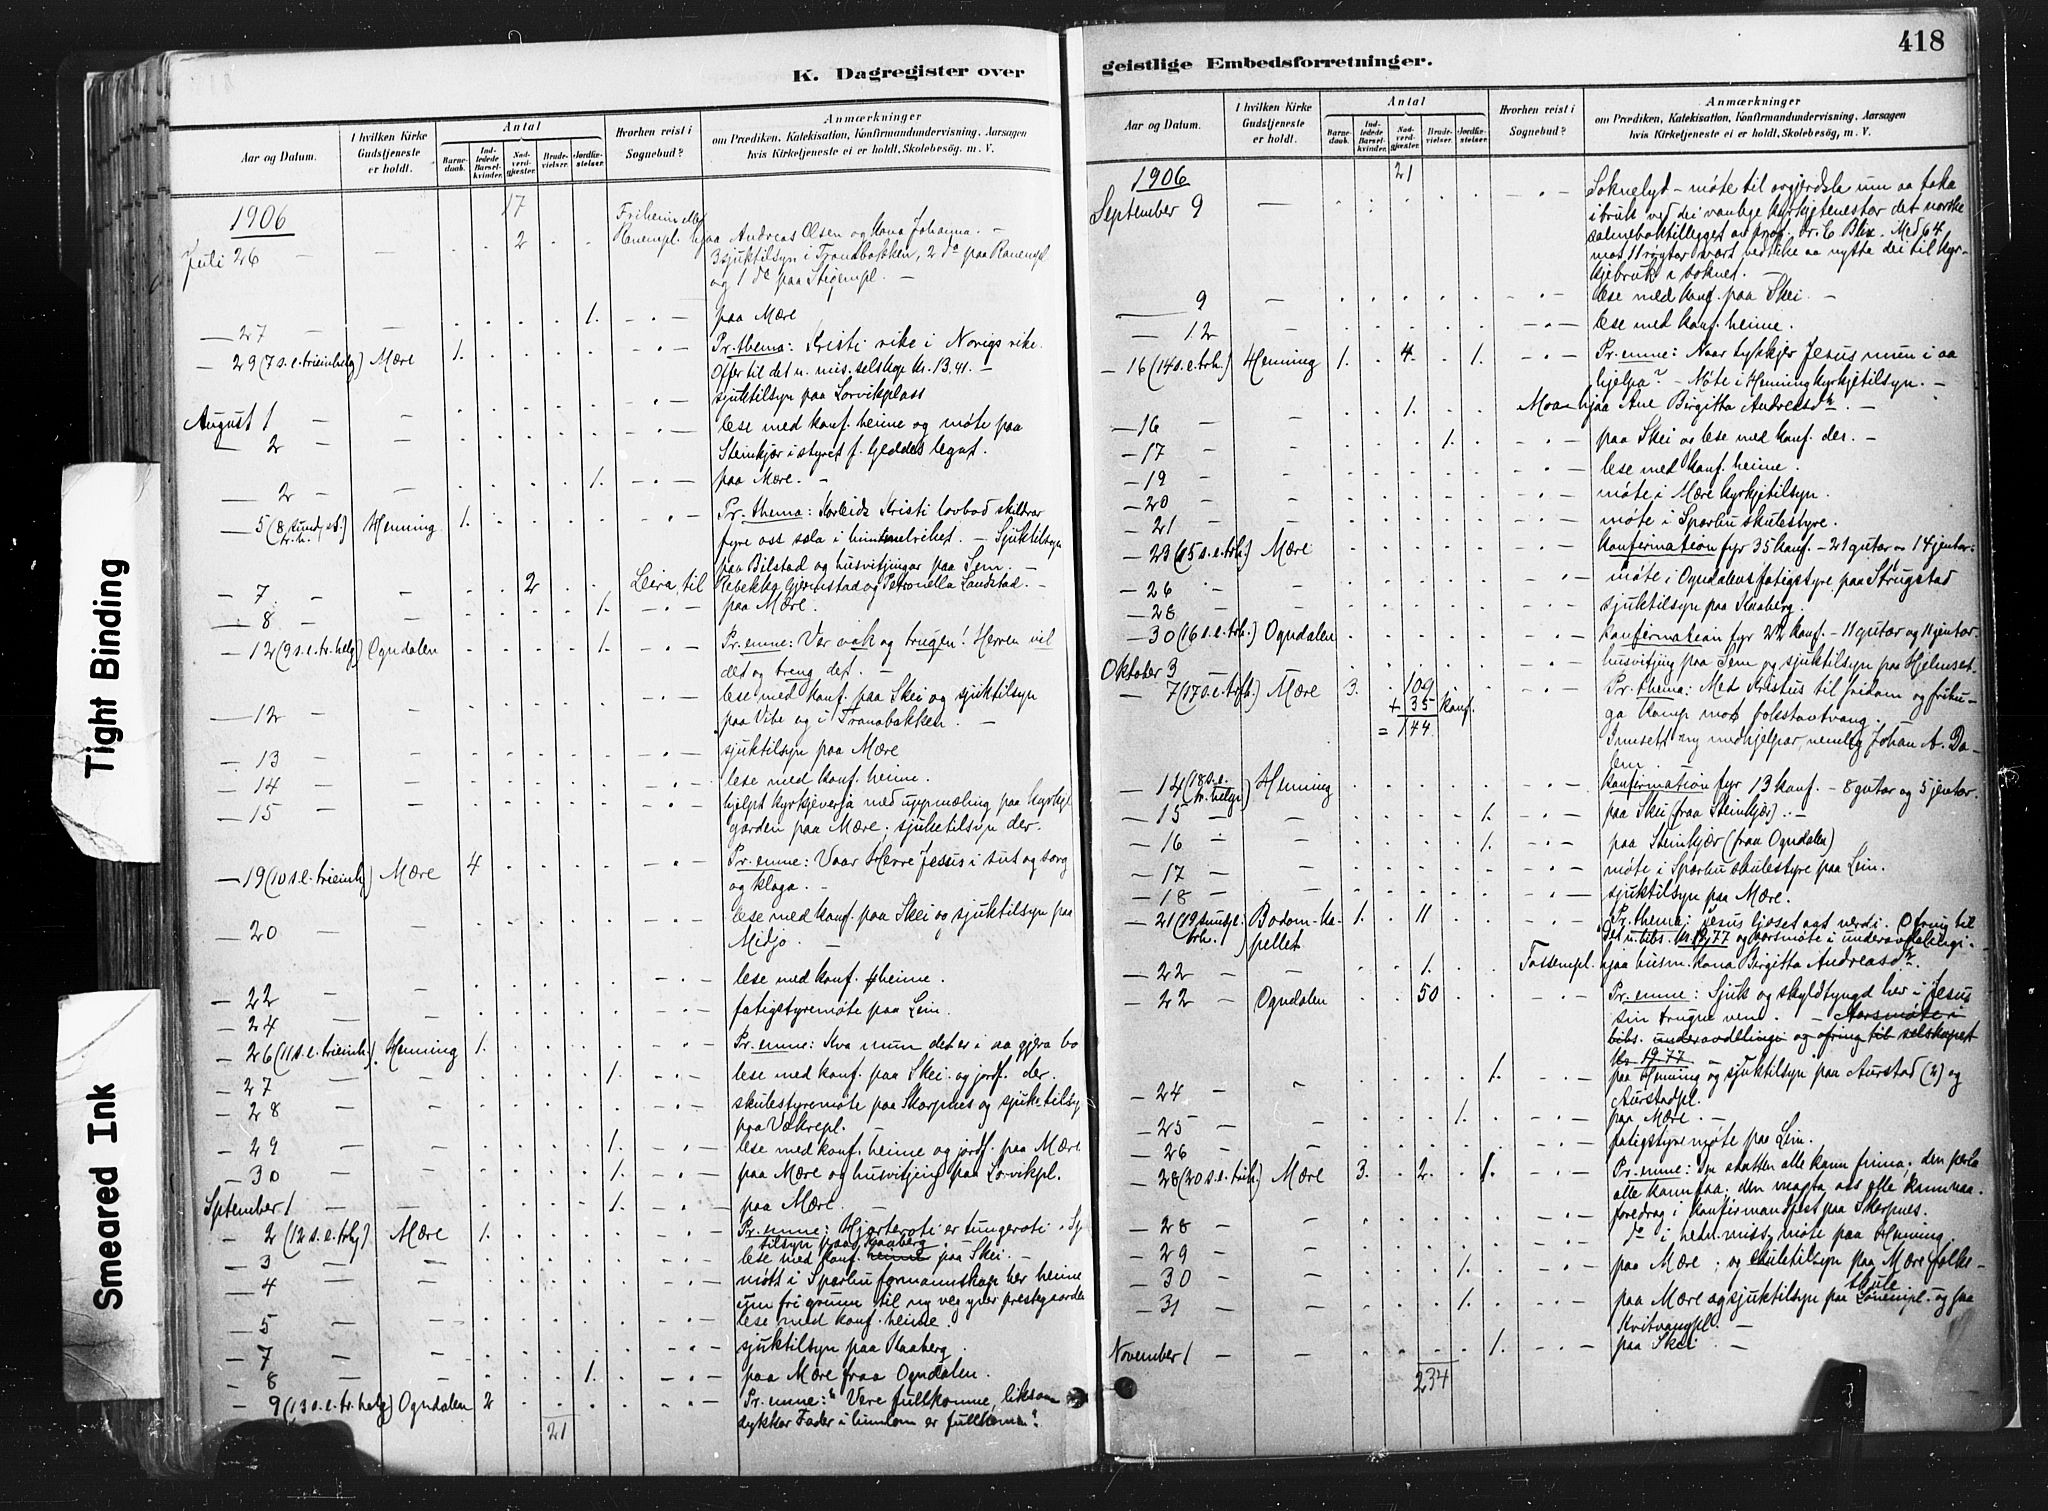 418
K. Dagregister over
geistlige Embedsforretninger.
Tight Binding
Smeared Ink
Aar og Datum.
I hvilken Kirke Gudstjeneste er holdt.
Antal
Barnedaab.
Indledede Barselkvinder.
Nadverdgjæster.
Brudevielser.
Jordfæstelser.
Hvorhen reist i Sognebud?
Anmærkninger
om Prædiken, Katekisation, Konfirmandundervisning, Aarsagen
hvis Kirketjeneste ei er holdt, Skolebesøg. m. V.
1906 17
Juli 26 — — 2 Ranempl. hjaa Andreas Olsen og kona Johanna. —
3 sjuktilsyn i Tranabakken, 2 do paa Ranempl
og 1 do paa Stigempl.
— 27 — — 1. — paa Mære
— 29 (7 s. e. trieinhelg) Mære 1. Pr. thema: Kristi rike i Norigs rike.
Offer til det n. mis. selskap kr. 13,41. —
August 1 — — sjuktilsyn paa Lorvikplass
— 2 — — lese med konf. heime og møte paa
Steinkjer i styret f. Gjeddes legat.
— 2 — — 1. — paa Mære. —
— 5 (8 sund. et. tr.h.) Henning 1. Pr. thema: Korleids Kristi lovbod skildrar
fyre oss sola i himmelriket. — Sjuktilsyn
paa Bilstad og husvitjingar paa Sem. —
— 7 — — 2 Leira, til Rebekka Gjermstad og Petronella Landstad. —
— 8 — — 1. — paa Mære.
— 12 (9 s. e. tr. helg) Ogndalen 1. Pr. emne: Ver vak og trugen! Herren vil
det og treng det. —
— 12 — — lese med konf. paa Skei og sjuktilsyn
paa Vibe og i Tranabakken. —
— 13 — — sjuktilsyn paa Mære
— 14 — — lese med konf. heime.
— 15 — — hjelpt kyrkjeverja med uppmæling paa kyrkje
garden paa Mære; sjuketilsyn der.
— 19 (10 s. e. trieinh.) Mære 4 Pr. emne: Vaar Herre Jesus i sut og sorg
og klaga. —
— 20 — — lese med konf. paa Skei og sjuktilsyn paa
Midjo. —
— 22 — — lese med konf. heime.
— 24 — — fatigstyremøte paa Lein.
— 26 (11 s. e. trieinh.) Henning 1. Pr. emne: Kva mun det er i aa gjera bo
— 27 — — 1. lese med konf. paa Skei og jordf. der.
— 28 — — skulestyremøte paa Skarpnes og sjuktilsyn
paa Vakrepl. —
— 29 — — 1. lese med konf. heime og jordf. paa Mære
— 30 — — 1. paa Mære og husvitjing paa Lorvikpl.
September 1 — — 1. paa Mære. —
— 2 (12 s. e. trhg) Mære 1. Pr. emne: Hjarteroti er tungeroti. Sj
tilsyn paa Kaaberg.
— 3 — lese med konf. heime paa Skei. —
— 4 — møtt i Sparbu formannskap her heime
um fri grunn til ny veg yver prestegaarden
— 5 — lese med konf. heime.
— 7 — sjuktilsyn paa Kaaberg
— 8 — 1. paa Mære fraa Ogndalen.
— 9 (13 s. e. tr. helg) Ogndalen 2 Pr. emne: "Vere fullkomne, liksom
dykkar Fader i himlom er fullkomen".
21
Aar og Datum.
I hvilken Kirke Gudstjeneste er holdt.
Antal
Barnedaab.
Indledede Barselkvinder.
Nadverdgjæster.
Brudevielser.
Jordfæstelser.
Hvorhen reist i Sognebud?
Anmærkninger
om Prædiken, Katekisation, Konfirmandundervisning, Aarsagen
hvis Kirketjeneste ei er holdt, Skolebesøg, m. V.
1906 21
September 9 — Soknelyd-møte til avgjerdsla um aa taka
i bruk ved dei vanlege kyrkjetenestor det norske
salmeboktillegget av prof. Dr. E. Blix. Med 64
mot 11 røystar vart vedteke aa nytta dei til kyr-
kjebruk i soknet.
— 9 — lese med konf. paa Skei. —
— 12 — lese med konf. heime.
— 16 (14 s. e. trh.) Henning 1. 4. 1. Pr. emne: Naar tykkjer Jesus mun i aa
hjelpa? — Møte i Henning kyrkjetilsyn. —
— 16 — — 1. Moa hjaa Ane Birgitta Andreasdr. —
— 17 — — 1. paa Skei og lese med konf. der. —
— 19 — — lese med konf. heime.
— 20 — — møte i Mære kyrkjetilsyn.
— 21 — — møte i Sparbu skulestyre.
— 23 (15 s. e. trh.) Mære konfirmation fyr 35 konf. — 21 gutar og 14 jentor.
— 26 — møte i Ogndalens fatigstyre paa Strugstad
— 28 — sjuktilsyn paa Kaaberg.
— 30 (16 s. e. trh.) Ogndalen konfirmation fyr 22 konf. — 11 gutar og 11 jentor.
Oktober 3 husvitjing paa Sem og sjuktilsyn paa Hjelmset.
— 7 (17 s. e. trh.) Mære 3. 109 Pr. thema: Med Kristus til fridom og frihu-
+ 35 konf. ga kamp mot folstavtvang.
= 144 Innsett ny medhjelpar, nemleg Johan A. Da-
lem.
— 14 (18 s. e. tr. helgi) Henning konfirmation fyr 13 konf. — 8 gutar og 5 jentor.
— 15 — — 1. paa Skei (fraa Steinkjer). —
— 16 — — 1. paa Steinkjer (fraa Ogndalen)
— 17 — — møte i Sparbu skulestyre paa Lein.
— 18 — — sjuktilsyn paa Mære.
— 21 (19 sundg. trh.) Bodom-kapellet 1. 11 Pr. thema: Jesus ljoset ogt verdi. Ofring til
det n. bibs. kr. 19,77 og aarsmøte i underavdelingi.
— 22 — — 1. Tossempl. hjaa husm. kona Birgitta Andreasdr.
— 22 — Ogndalen 50 Pr. emne: Sjuk og skyldtyngd her i Jesus
sin trugne ven. — Aarsmøte i
bibs. underavdelingi og ofring til selskapet
kr. 19,77
— 24 — 1. paa Henning og sjuktilsyn paa Aurstad (2) og
Aurstadpl.
— 25 — — 1. paa Mære. —
— 26 — — fatigstyremøte paa Lein.
— 28 (20 s. e. trih.) Mære 3. 2. 1. Pr. emne: Den skatten alle kann finna, den perla
alle kann faa, den magta oss alle kann naa.
— 28 — — foredrag i konfirmandfest paa Skarpnes.
— 29 — — do i hedn. miss. møte paa Henning.
— 30 — — 1. paa Mære; og skuletilsyn paa Mære folke-
skule
— 31 — — 1. paa Mære og sjuktilsyn paa Lønempl. og paa
Kvitvangpl. —
November 1 — — 1. paa Skei. —
234